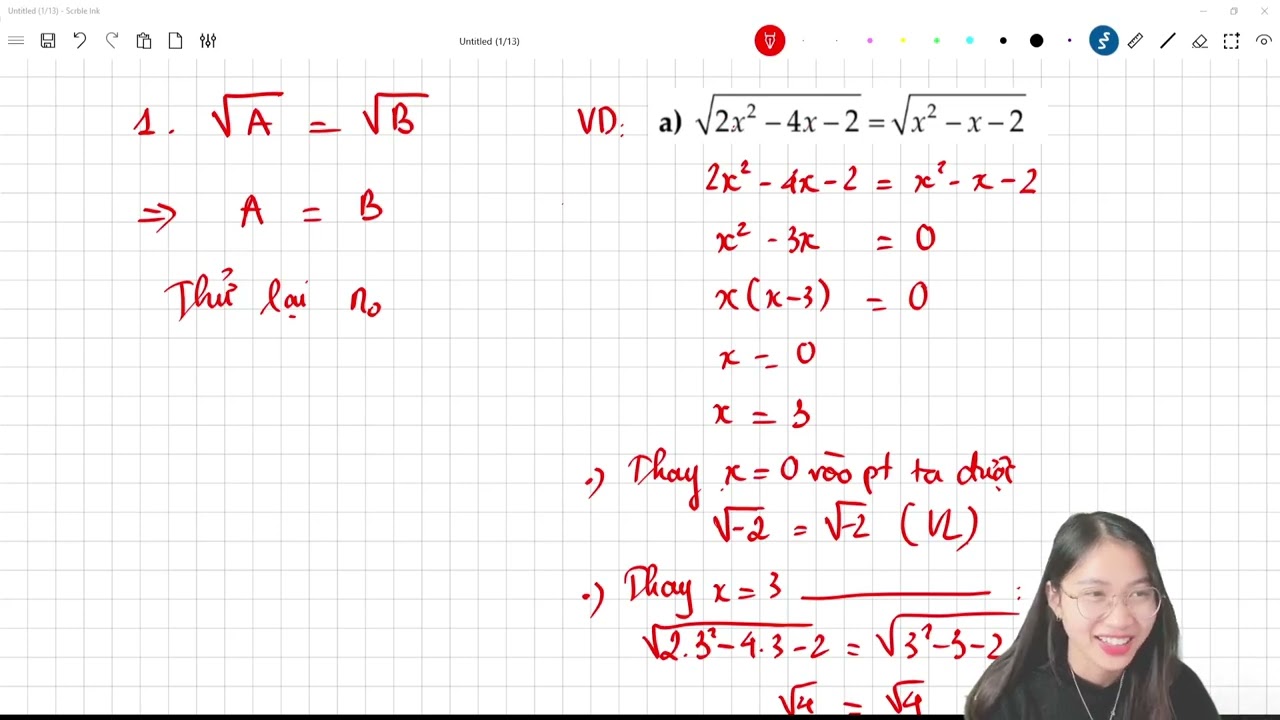 Untitled (1/13) - Scrble Ink
Untitled (1/13)
1. √A = √B
⇒ A = B
Thử lại n₀
VD: a) √(2x² − 4x − 2) = √(x² − x − 2)
2x² - 4x - 2 = x² - x - 2
x² - 3x = 0
x(x-3) = 0
x = 0
x = 3
•) Thay x = 0 vào pt ta được
√-2 = √-2 (VL)
•) Thay x = 3 ________ :
√(2.3² - 4.3 - 2) = √(3² - 3 - 2)
√4 = √4